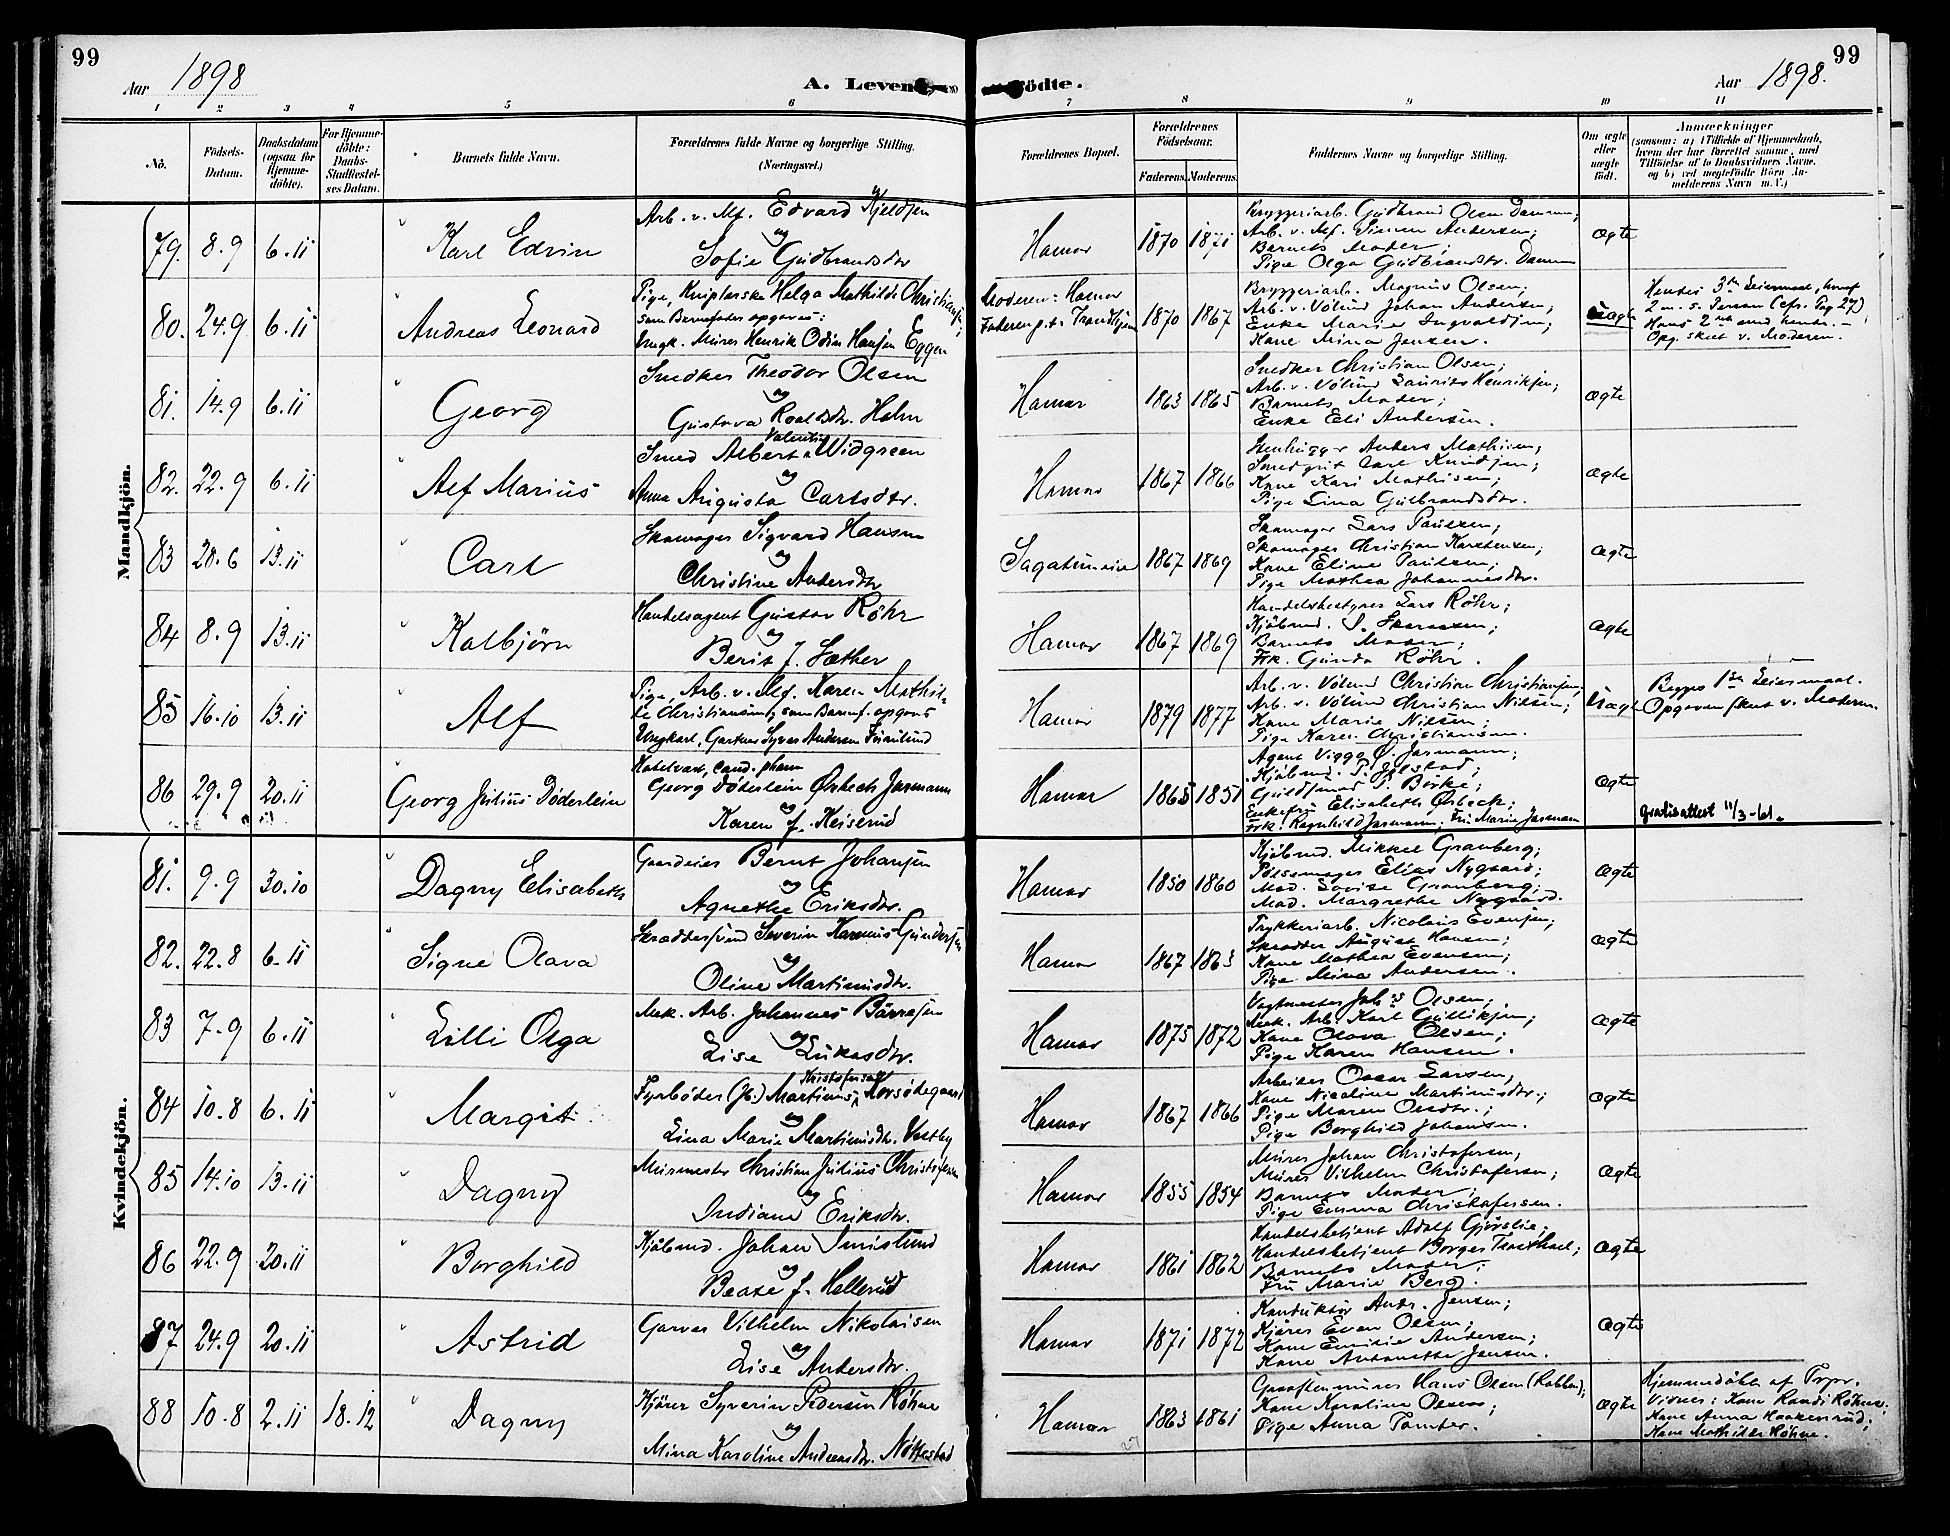 99
99
Aar 1898
A. Levende
födte.
Aar 1898.
1 2 3 4 5 6 7 8 9 10 11
No.
Födsels-Datum.
Daabsdatum (ogsaa for Hjemme-döbte).
For Hjemme-döbte: Daabs-Stadfæstel-ses Datum.
Barnets fulde Navn.
Forældrenes fulde Navne og borgerlige Stilling. (Næringsvei.)
Forældrenes Bopæl.
Forældrenes Födselsaar.
Faderens. Moderens.
Faddernes Navne og borgerlige Stilling.
Om ægte eller uægte födt.
Anmærkninger
(saasom: a) i Tilfælde af Hjemmedaab, hvem der har forrettet samme, med Tilföielse af to Daabsvidners Navne, og b) ved uægtefödte Börn An-melderens Navn m. V.)
Mandkjön.
79. 8.9 6.11 Karl Edvin
Arb. v. Mf. Edvard Kjeldsen
og
Sofie Gudbrandsdtr
Hamar 1870 1871
Bryggeriarb. Gudbrand Olsen Dammen;
Arb. v. Mf. Simen Andersen;
Barnets Moder;
Pige Olga Gudbrandsdtr. Dammen
ægte
80. 24.9 6.11 Andreas Leonard
Pige, Kniplerske Helga Mathilde Christiansen;
som Barnefader opgaves:
Ungk. Murer Henrik Odin Hansen Eggen
Moderen: Hamar
Faderen p.t. Trondhjem
1870 1867
Bryggeriarb. Magnus Olsen;
Arb. v. Völund Johan Andersen;
Enke Marie Ingvaldsen;
Kone Mina Jensen.
uægte
Hendes 3die Leiermaal, hvoraf
2 m. s. Person (cfr. Pag 27)
Hans 2det med hende. -
Opg. skeet v. Moderen.
81. 14.9 6.11 Georg
Snedker Theodor Olsen
og
Gustava Roaldsdtr. Holm
Hamar 1863 1865
Snedker Christian Olsen;
Arb. v. Völund Laurits Henriksen;
Barnets Moder;
Enke Eli Andersen.
ægte
82. 22.9 6.11 Alf Marius
Smed Albert Valentin Widgreen
og
Anna Augusta Carlsdtr.
Hamar 1867 1866
Stenhugger Anders Mathisen;
Smedgut Carl Knudsen;
Kone Kari Mathisen;
Pige Lina Gulbrandsdtr.
ægte
83 28.6 13.11 Carl
Skomager Sigvard Hansen
og
Christine Andersdtr
Sagatunveien 1867 1869
Skomager Lars Paulsen;
Skomager Christian Karstensen;
Kone Eline Paulsen;
Pige Mathea Johannesdtr.
ægte
84 8.9 13.11 Kolbjörn
Handelsagent Gustav Röhr
og
Berit f. Sæther
Hamar 1867 1869
Handelsbestyrer Lars Röhr;
Kjöbmd. S. Skaraasen;
Barnets Moder;
Frk. Gunda Röhr.
ægte
85 16.10 13.11 Alf
Pige, Arb. v. Mf. Karen Mathil-
de Christiansen, som Barnef. opgaves
Ungkarl, Gartner Syver Andersen Furulund
Hamar 1879 1877
Arb. v. Völund Christian Christiansen;
Arb. v. Völund Christian Nilsen;
Kone Marie Nilsen;
Pige Karen Christiansen.
uægte
Begges 1ste Leiermaal.
Opgaven skeet v. Moderen.
86 29.9 20.11 Georg Julius Döderlein
Hotelvært, cand. pharm
Georg Döderlein Ørbech Jasmann
og
Karen f. Heiserud
Hamar 1865 1851
Agent Viggo Ø. Jasmann;
Kjöbmd. P. Jelstad;
Guldsmed P. Borke;
Enkefru Elisabeth Ørbeck;
Frk. Ragnhild Jasmann, Fru Marie Jasmann
ægte
Gratisattest 11/3-61.
Kvindekjön.
81. 9.9 30.10 Dagny Elisabeth
Gaardeier Bernt Johansen
og
Agnethe Eriksdtr.
Hamar 1850 1860
Kjöbmd. Mikkel Granberg;
Pölsemager Elias Nygaard;
Mad. Lovise Granberg;
Mad. Margrethe Nygaard.
ægte
82. 22.8 6.11 Signe Olava
Skræddersvend Severin Hannus Gundersen
og
Oline Martinusdtr.
Hamar 1867 1863
Trykkeriarb. Nicolai Evensen;
Skrædder August Hansen;
Kone Mathea Evensen;
Pige Mina Andersen.
ægte
83 7.9 6.11 Lilli Olga
Mek. Arb. Johannes Börresen
og
Lise Lukasdtr.
Hamar 1875 1872
Vagtmester Johs Olsen;
Mek. Arb. Karl Gulliksen;
Kone Olava Olsen;
Pige Karen Hansen.
ægte
84 10.8 6.11 Margit
Fyrböder (Jb.) Martinus Kristofersen Korsödegaard
og
Lina Marie Martinusdtr. Vestby
Hamar 1867 1866
Arbeider Oscar Larsen;
Kone Nicoline Martinusdtr.;
Pige Maren Olsdtr.;
Pige Borghild Johansen.
ægte
85 14.10 13.11 Dagny
Murmester Christian Julius Christofersen
og
Indiana Eriksdtr.
Hamar 1855 1854
Murer Johan Christofersen;
Murer Vilhelm Christofersen;
Barnets Moder;
Pige Emma Christofersen.
ægte
86 22.9 20.11 Borghild
Kjöbmd. Johan Smislund
og
Beate f. Hellerud
Hamar 1861 1862
Handelsbetjent Adolf Gjörslie;
Handelsbetjent Borger Trosthoel;
Barnets Moder;
Fru Marie Berg.
ægte
87 24.9 20.11 Astrid
Garver Vilhelm Nikolaisen
og
Lise Andersdtr.
Hamar 1871 1872
Konduktör Andr. Jensen;
Kjörer Even Olsen;
Kone Emilie Andersen;
Kone Antonette Jensen.
ægte
88 10.8 2.11 18.12 Dagny
Kjörer Syverin Pedersen Röhne
og
Mina Karoline Andreasdtr. Nöttestad
Hamar 1863 1861
Graastensmurer Hans Olsen (Kobben);
Kone Karoline Olsen;
Pige Anna Tomter.
ægte
Hjemmedöbt af Propr.
Vidner: Kone Randi Röhne;
Kone Anna Haakenrud;
Kone Mathilde Röhne.